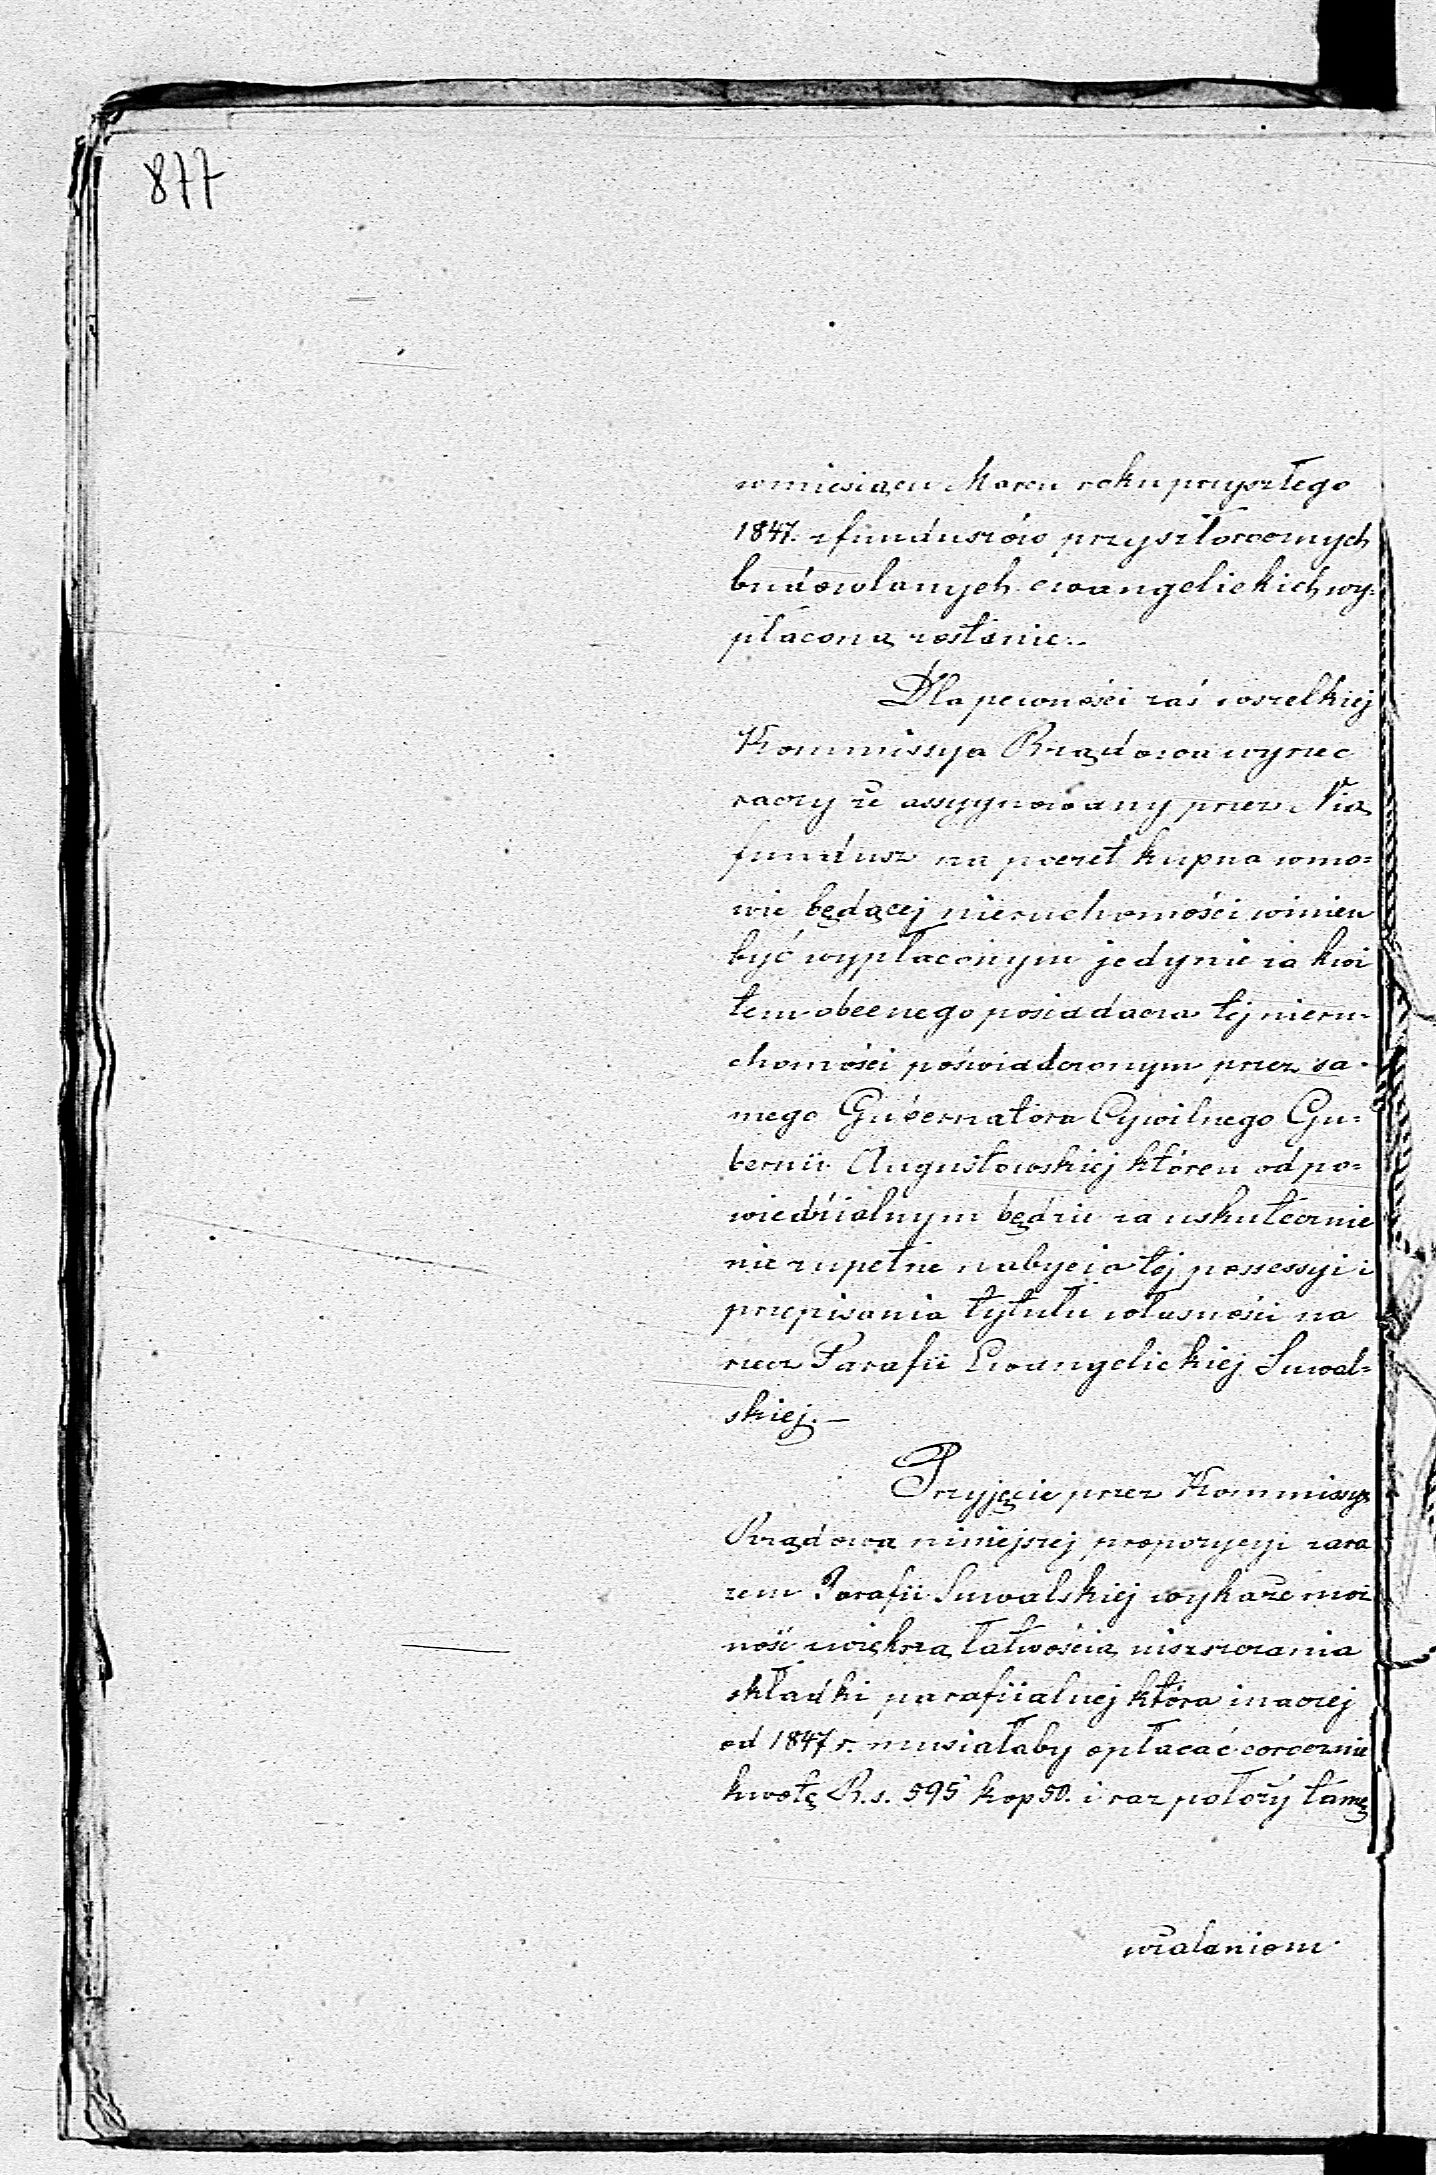 877
w miesiącu Marcu roku przyszłego
1847. z funduszów przyszłorocznych
budowlanych ewangelickich wy-
płaconą zostanie.-
Dla pewności zaś wszelkiej
Kommissya Rządowa wyrzec
raczy że assygnowany przez Nią
fundusz na poczet kupna w mo=
wie będącej nieruchomości winien
być wypłaconym jedynie za kwi
tem obecnego posiadacza tej nieru-
chomości poświadczonym przez sa-
mego Gubernatora Cywilnego Gu=
bernii Augustowskiej któren odpo=
wiedzialnym będzie za uskutecznie
nie zupełne nabycia tej possessyi i
przepisania tytułu własności na
rzecz Parafii Ewangelickiej Suwal=
skiej.—
Przyjęcie przez Kommissyą
Rządową niniejszej propozycyi zara
zem Parafii Suwalskiej wykaże moż
ność z większą łatwością uiszczania
składki parafiialnej która inaczej
od 1847 r. musiałaby opłacać corocznie
kwotę R.s. 595 kop 50. i raz położy tamę
wżalaniom